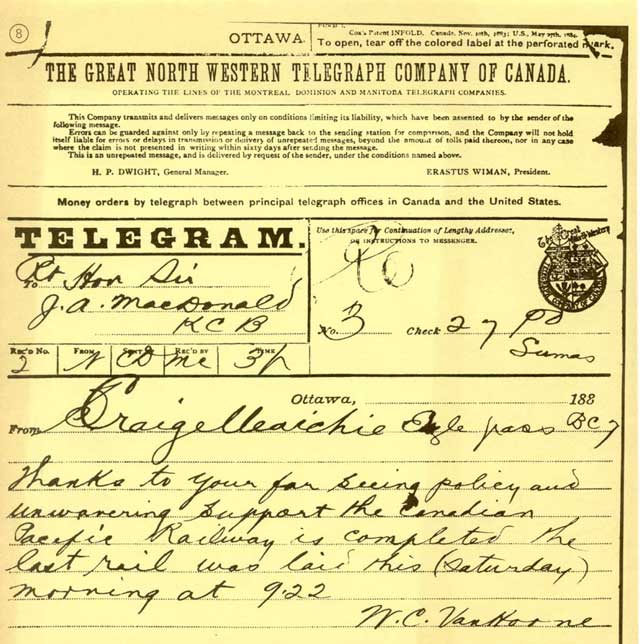 8
OTTAWA.
Cox's Patent INFOLD. Canada, Nov. 20th, 1883; U.S., May 27th, 1884.
To open, tear off the colored label at the perforated mark.
THE GREAT NORTH WESTERN TELEGRAPH COMPANY OF CANADA.
OPERATING THE LINES OF THE MONTREAL, DOMINION AND MANITOBA TELEGRAPH COMPANIES.
This Company transmits and delivers messages only on conditions limiting its liability, which have been assented to by the sender of the
following message.
Errors can be guarded against only by repeating a message back to the sending station for comparison, and the Company will not hold
itself liable for errors or delays in transmission or delivery of unrepeated messages, beyond the amount of tolls paid thereon, nor in any case
where the claim is not presented in writing within sixty days after sending the message.
This is an unrepeated message, and is delivered by request of the sender, under the conditions named above.
H. P. DWIGHT, General Manager.
ERASTUS WIMAN, President.
Money orders by telegraph between principal telegraph offices in Canada and the United States.
TELEGRAM.
Use this space for Continuation of Lengthy Addresses,
OR INSTRUCTIONS TO MESSENGER.
To Rt Hon Sir
J. A. MacDonald
KCB
No. 3 Check 27 Pd
Sumas
REC'D No. FROM SENT BY REC'D BY TIME
2 N ED Mc 3p
Ottawa, 188
From Craigellaichie Eagle pass BC 7
Thanks to your far seeing policy and
unwavering support the Canadian
Pacific Railway is completed the
last rail was laid this (Saturday)
morning at 9.22
W.C. VanHorne